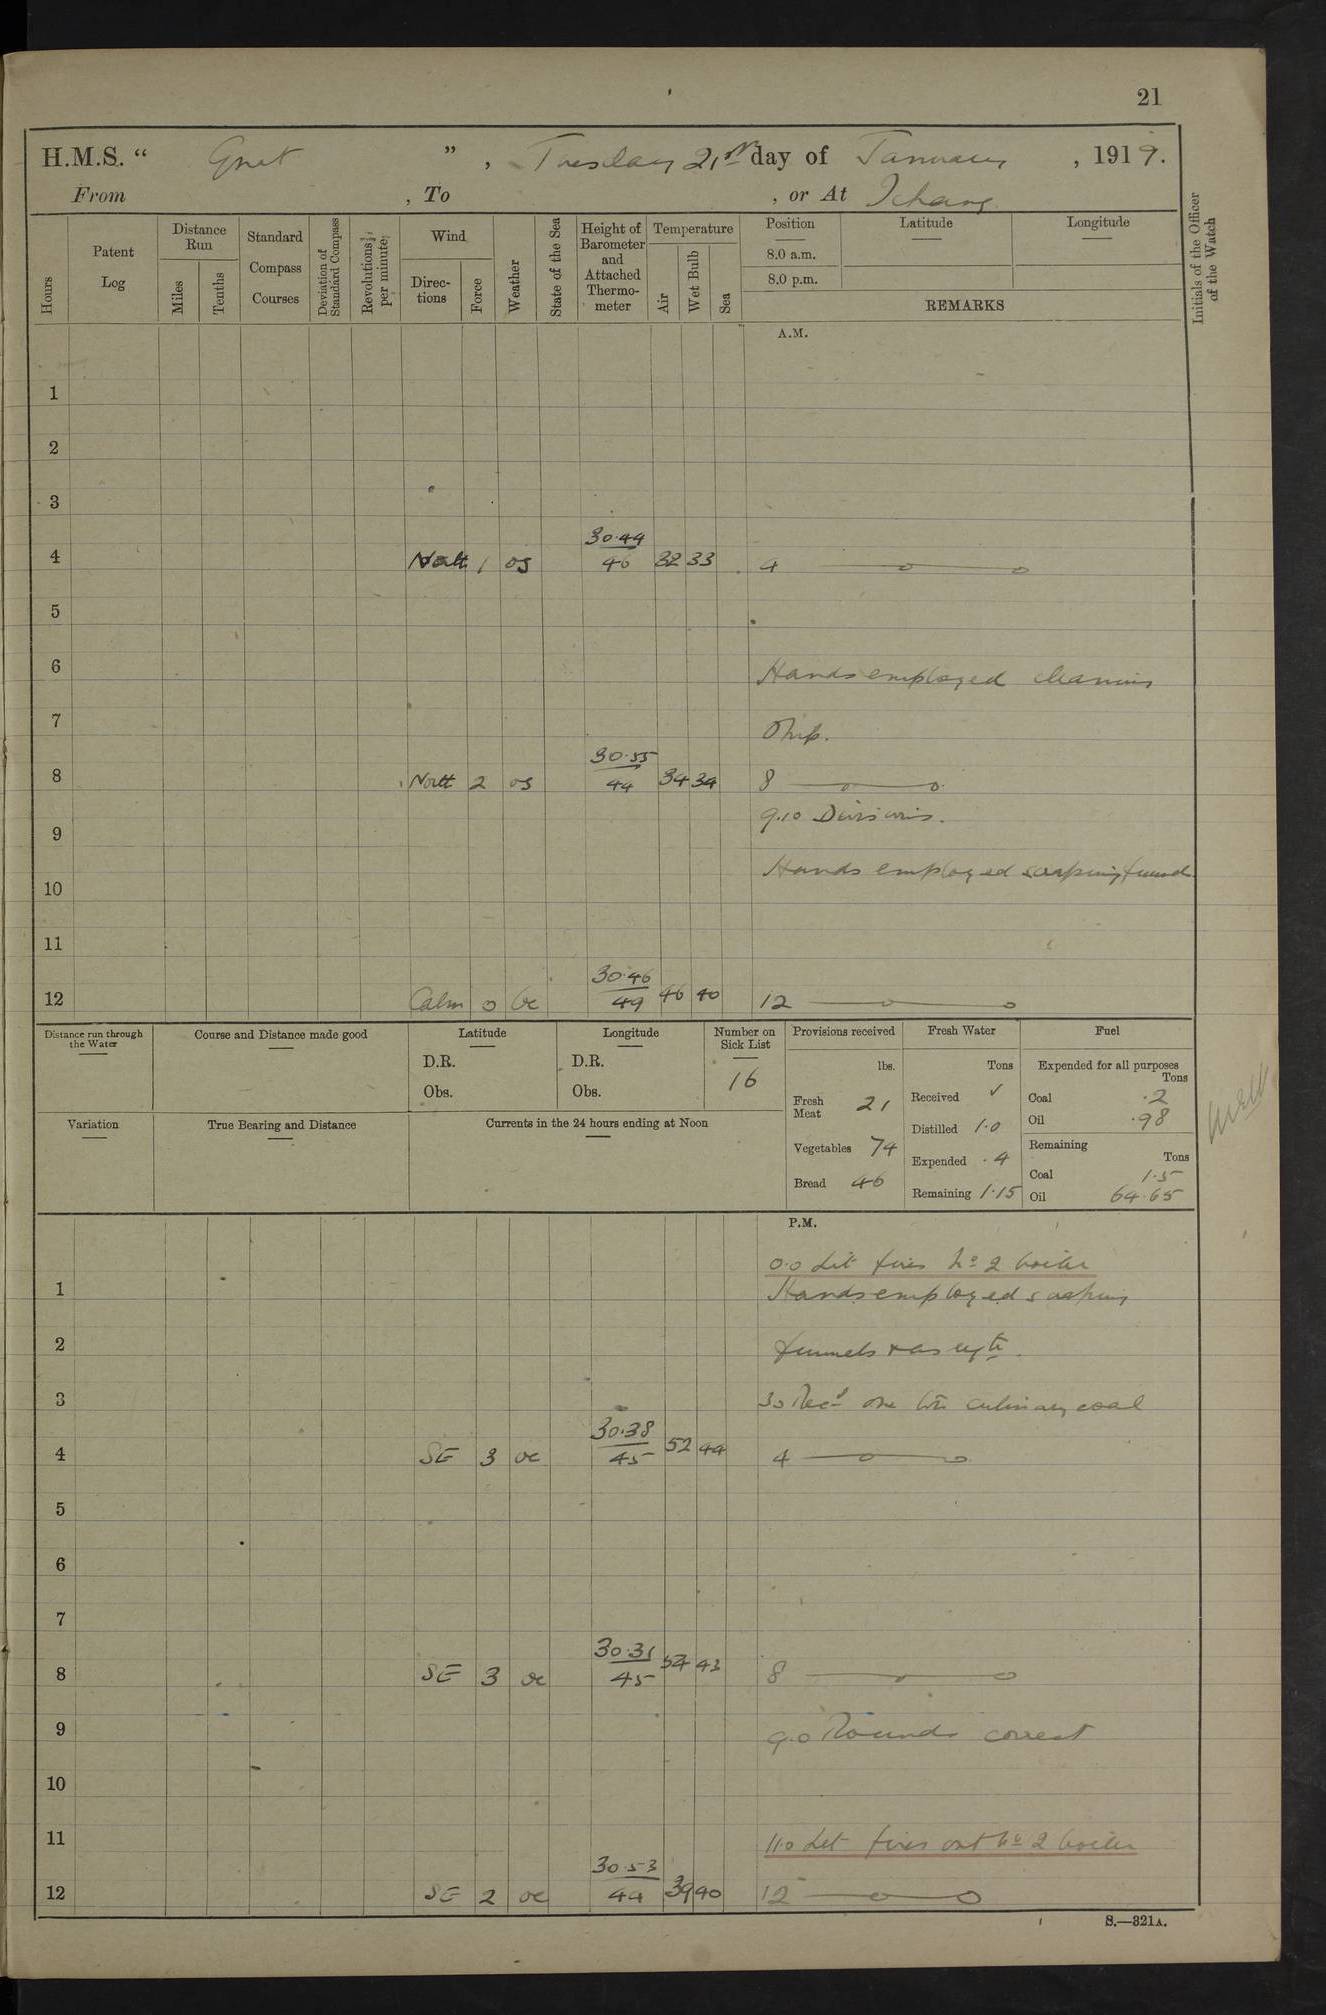 21
H.M.S. “ Gnat ” , Tuesday 21st day of January , 1919.
From , To , or At Ichang
Hours
Patent Log
Distance Run
Miles
Tenths
Standard Compass Courses
Deviation of Standard Compass
Revolutions per minute
Wind
Direc-tions
Force
Weather
State of the Sea
Height of Barometer and Attached Thermo-meter
Temperature
Air
Wet Bulb
Sea
Position
8.0 a.m.
8.0 p.m.
Latitude
Longitude
REMARKS
Initials of the Officer of the Watch
A.M.
1
2
3
30.44
4 North 1 os 46 32 33 4
5
6 Hands employed cleaning
7 Ship.
30.55
8 North 2 os 44 34 34 8
9.10 Divisions.
9
Hands employed scraping funnel
10
11
30.46
12 Calm 0 bc 49 46 40 12
Distance run through the Water
Course and Distance made good
Latitude
D.R.
Obs.
Longitude
D.R.
Obs.
Number on Sick List
16
Provisions received
lbs.
Fresh Meat 21
Vegetables 74
Bread 46
Fresh Water
Tons
Received ✓
Distilled 1.0
Expended .4
Remaining 1.15
Fuel
Expended for all purposes
Tons
Coal .2
Oil .98
Remaining
Tons
Coal 1.5
Oil 64.65
Variation
True Bearing and Distance
Currents in the 24 hours ending at Noon
P.M.
0.0 Lit fires No 2 boiler
1 Hands employed scraping
2 funnels & as reqte.
3 30 Recd one ton culinary coal
30.38
4 SE 3 oc 45 52 44 4
5
6
7
30.31
8 SE 3 oc 45 54 43 8
9 9.0 Rounds correct
10
11 11.0 Let fires out No 2 boiler
30.53
12 SE 2 oc 44 39 40 12
S.—321A.